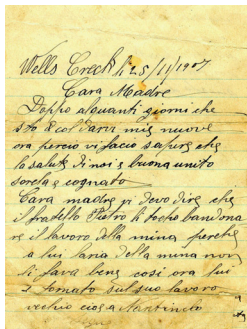 Wells Creek li 25/11/1907
Cara Madre
Doppo alquanti giorni che
sto col darvi mie nuove
ora percio vi facio sapere che
la salute di noi e buona unito
sorela e cognato
Cara madre vi devo dire che
il fratello Pietro li toche bandona
re il lavoro della mina perche
a lui laria della mina non
li fava bene cosi ora lui
e tornato sul suo lavoro
vechio cioe a